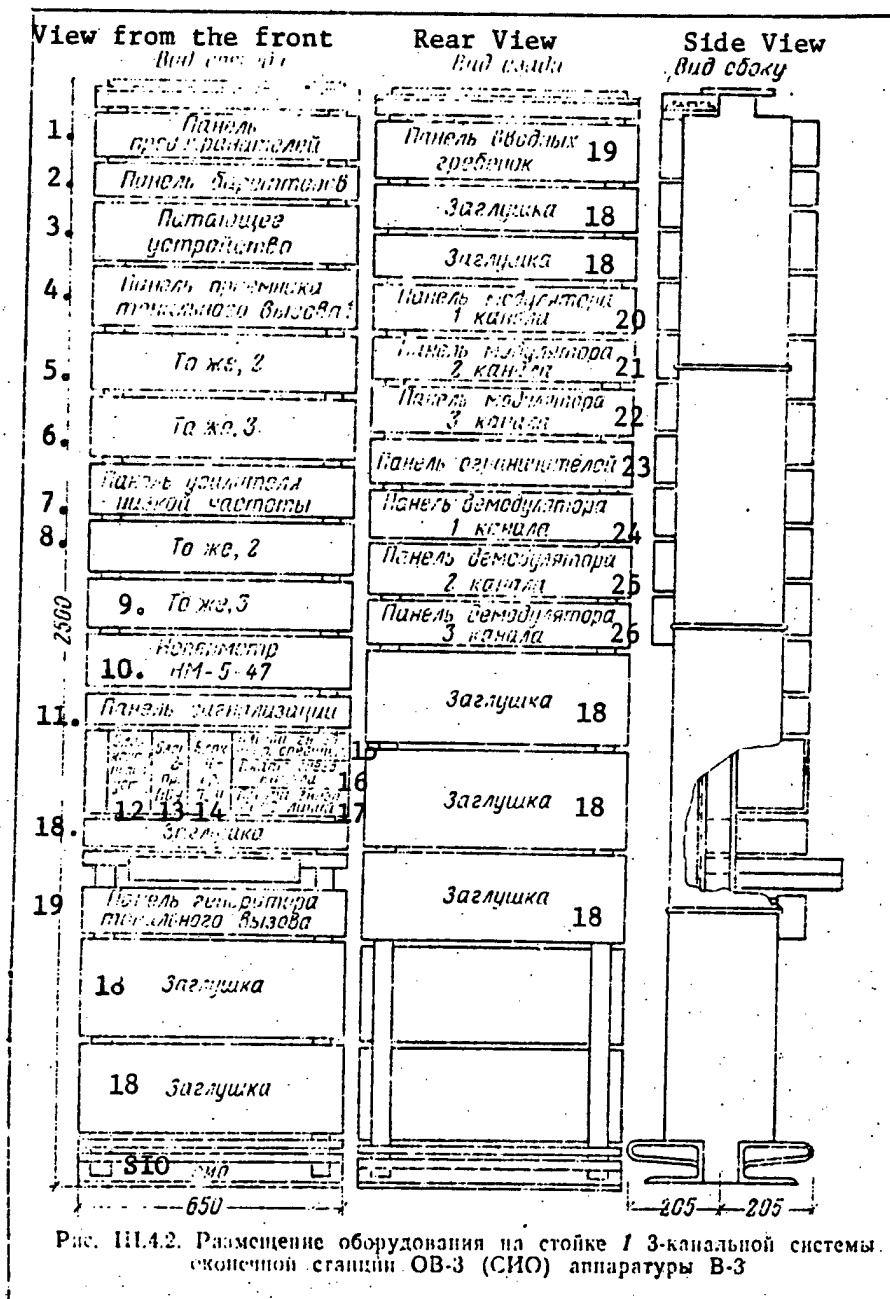 View from the front
Rear View
Side View
Вид сзади
Вид сбоку
1.
Панель
предохранителей
2.
Панель бареттелов
3.
Питающее
устройство
4.
Панель приемника
тонального вызова 1
5.
То же, 2
6.
То же, 3
7.
Панель усилителя
низкой частоты
8.
То же, 2
9. То же, 3
10.
НМ-5-47
11.
Панель сигнализации
12 13 14
15
16
17
18.
Заглушка
19
Панель генератора
тонального вызова
18 Заглушка
18 Заглушка
SIO
СИО
2500
650
Панель вводных
гребенок
19
Заглушка 18
Заглушка 18
Панель модулятора
1 канала
20
Панель модулятора
2 канала
21
Панель модулятора
3 канала
22
Панель ограничителей 23
Панель демодулятора
1 канала
24
Панель демодулятора
2 канала
25
Панель демодулятора
3 канала
26
Заглушка 18
Заглушка 18
Заглушка 18
205
205
Рис. III.4.2. Размещение оборудования на стойке 1 3-канальной системы
оконечной станции ОВ-3 (СИО) аппаратуры В-3